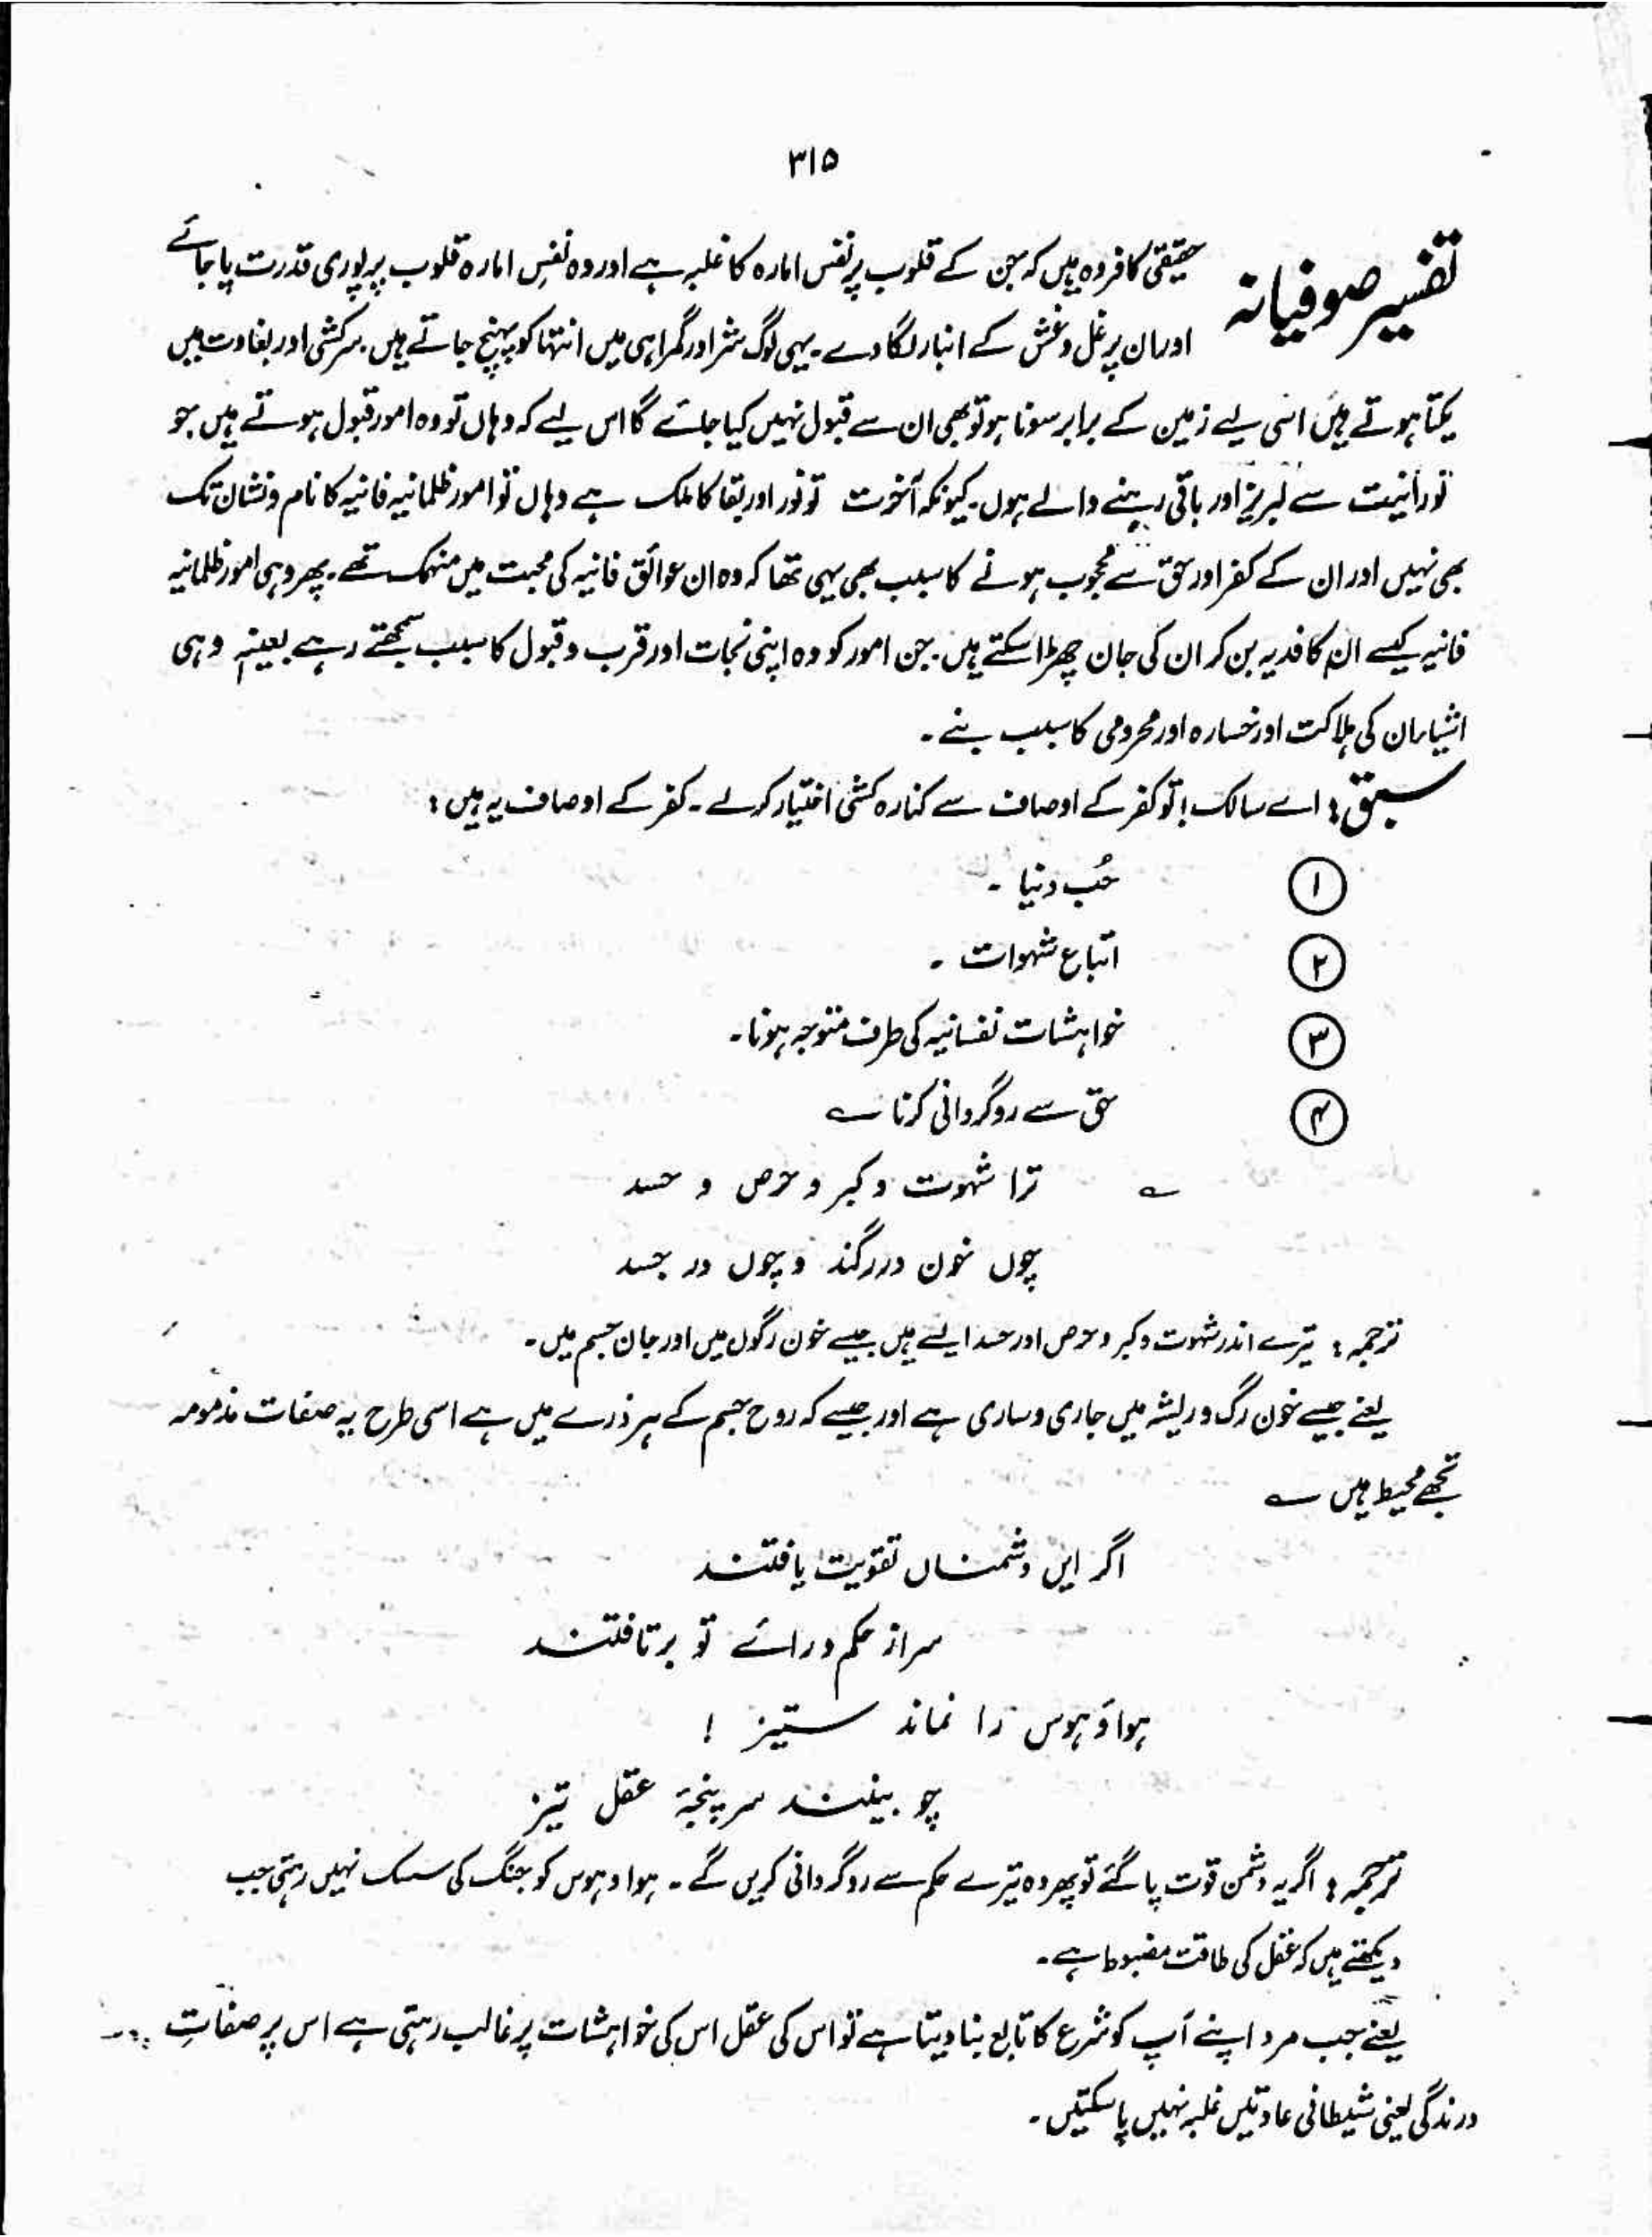 ۳۱۵
تفسیر صوفیانہ
حقیقی کافر وہ ہیں کہ جن کے قلوب پر نفس امارہ کا غلبہ ہے اور وہ نفسِ امارہ قلوب پر پوری قدرت پا جائے
اور ان پر غل و غش کے انبار لگا دے۔ یہی لوگ شر اور گمراہی میں انتہا کو پہنچ جاتے ہیں۔ سرکشی اور بغاوت میں
یکتا ہوتے ہیں اسی لیے زمین کے برابر سونا ہو تو بھی ان سے قبول نہیں کیا جائے گا اس لیے کہ وہاں تو وہ امور قبول ہوتے ہیں جو
نورانیت سے لبریز اور باقی رہنے والے ہوں۔ کیونکہ آخرت تو نور اور بقا کا ملک ہے وہاں تو امور ظلمانیہ فانیہ کا نام و نشان تک
بھی نہیں اور ان کے کفر اور حق سے محجوب ہونے کا سبب بھی یہی تھا کہ وہ ان عوائق فانیہ کی محبت میں منہمک تھے۔ پھر وہی امور ظلمانیہ
فانیہ کیسے ان کا فدیہ بن کر ان کی جان چھڑا سکتے ہیں۔ جن امور کو وہ اپنی نجات اور قرب و قبول کا سبب سمجھتے رہے بعینہٖ وہی
اشیاء ان کی ہلاکت اور خسارہ اور محرومی کا سبب بنے۔
سبق: اے سالک! تو کفر کے اوصاف سے کنارہ کشی اختیار کر لے۔ کفر کے اوصاف یہ ہیں:
۱ حُب دنیا۔
۲ اتباع شہوات۔
۳ خواہشات نفسانیہ کی طرف متوجہ ہونا۔
۴ حق سے روگردانی کرنا ؎
؎ ترا شہوت و کبر و حرص و حسد
چوں خون در رگند و چوں در جسد
ترجمہ: تیرے اندر شہوت و کبر و حرص اور حسد ایسے ہیں جیسے خون رگوں میں اور جان جسم میں۔
یعنے جیسے خون رگ و ریشہ میں جاری و ساری ہے اور جیسے کہ روح جسم کے ہر ذرے میں ہے اسی طرح یہ صفات مذمومہ
تجھے محیط ہیں ؎
اگر ایں دشمناں تقویت یافتند
سر از حکم و رائے تو بر تافتند
ہوا وَ ہوس را نماند ستیز !
چو بینند سر پنجۂ عقل تیز
ترجمہ: اگر یہ دشمن قوت پا گئے تو پھر وہ تیرے حکم سے روگردانی کریں گے۔ ہوا و ہوس کو جنگ کی سسک نہیں رہتی جب
دیکھتے ہیں کہ عقل کی طاقت مضبوط ہے۔
یعنے جب مرد اپنے آپ کو شرع کا تابع بنا دیتا ہے تو اس کی عقل اس کی خواہشات پر غالب رہتی ہے اس پر صفاتِ
درندگی یعنی شیطانی عادتیں غلبہ نہیں پا سکتیں۔